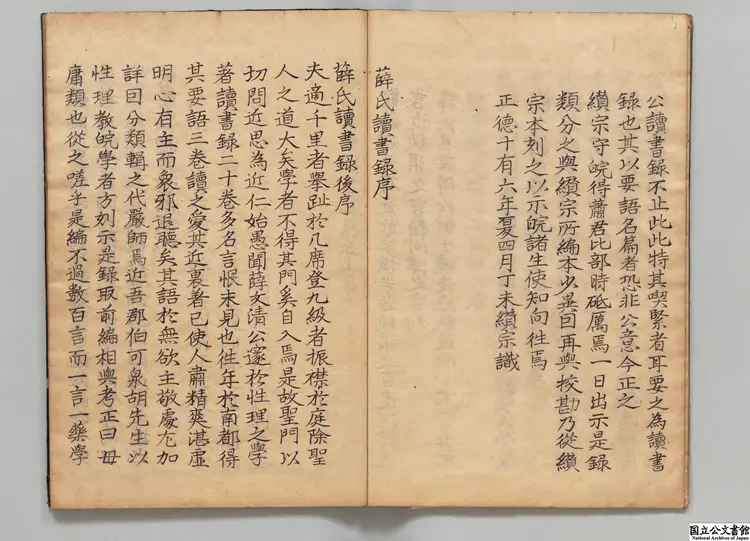 公讀書録不止此此特其喫緊者耳要之為讀書
録也其以要語名篇者恐非公意今正之
纘宗守皖得蕭君比部時砥厲焉一日出示是録
類分之與纘宗所編本少異曰再與校勘乃從纘
宗本刻之以示皖諸生使知向徃焉
正德十有六年夏四月丁未纘宗識
薛氏讀書録序
薛氏讀書録後序
夫適千里者舉趾於几席登九級者振襟於庭除聖
人之道大矣學者不得其門奚自入焉是故聖門以
切問近思為近仁始愚聞薛文清公邃於性理之學
著讀書録二十卷多名言恨未見也徃年於南都得
其要語三卷讀之愛其近裏著已使人肅精爽湛虚
明心有主而衆邪退聽矣其語於無欲主敬處尤加
詳曰分類輯之代嚴師焉近吾郡伯可泉胡先生以
性理教皖學者方刻示是録取前編相與考正曰毋
庸類也從之嗟乎是編不過數百言而一言一藥學
国立公文書館
National Archives of Japan